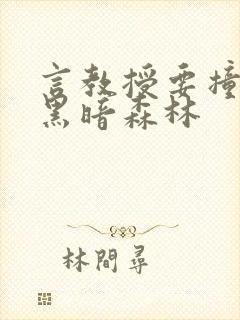 言教授要撞
黑暗森林
林間尋